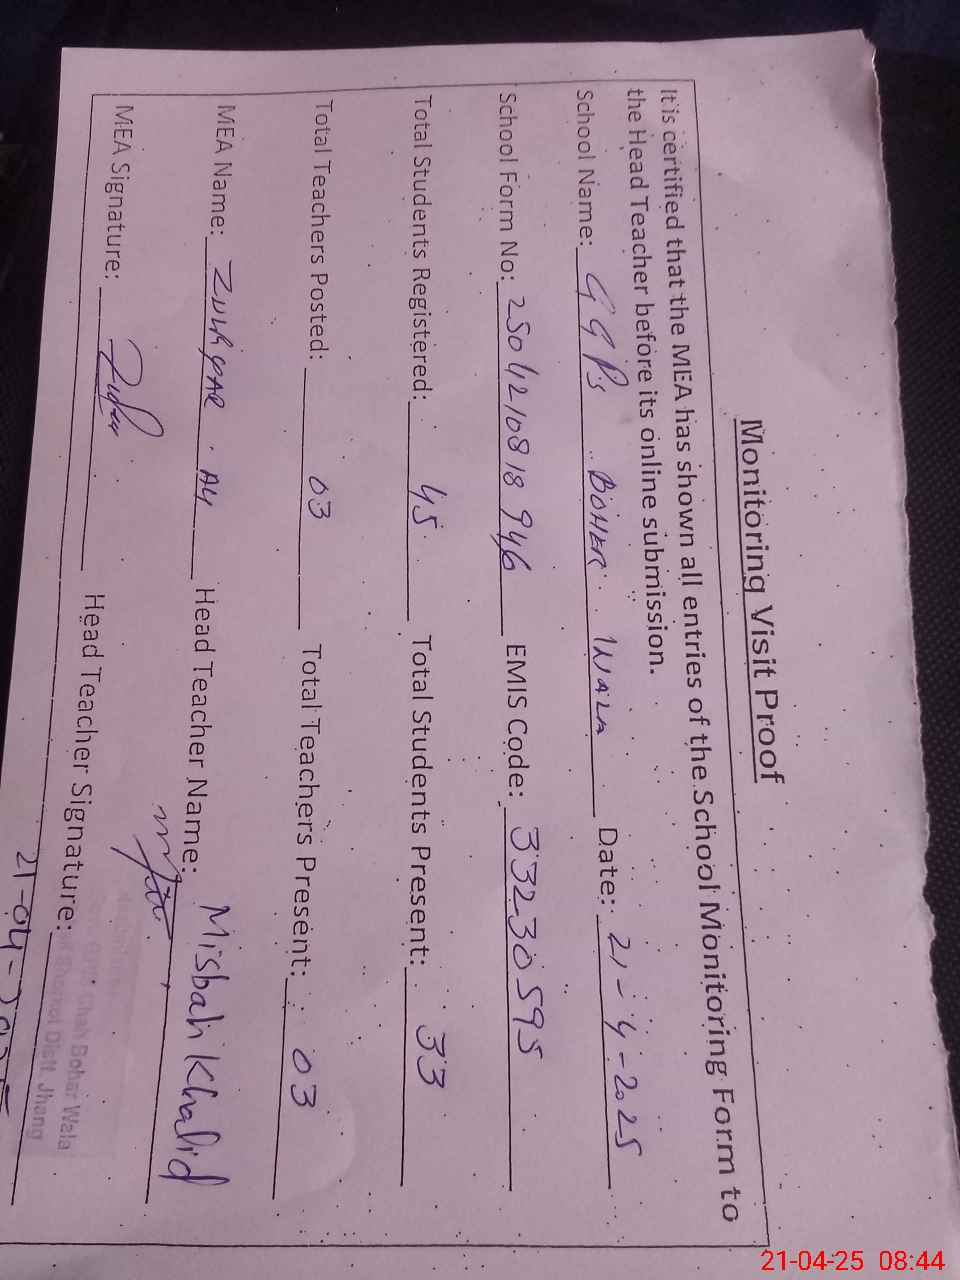 Monitoring Visit Proof
It is certified that the MEA has shown all entries of the School Monitoring Form to
the Head Teacher before its online submission.
School Name: GGPS BOHER WALA Date: 21-4-2025
School Form No: 2504210818946 EMIS Code: 33230595
Total Students Registered: 45 Total Students Present: 33
Total Teachers Posted: 03 Total Teachers Present: 03
MEA Name: ZULFIQAR Ali Head Teacher Name: Misbah Khalid
MEA Signature: Head Teacher Signature:
Chah Bohar Wala
Distt. Jhang
21-04-2025
21-04-25 08:44